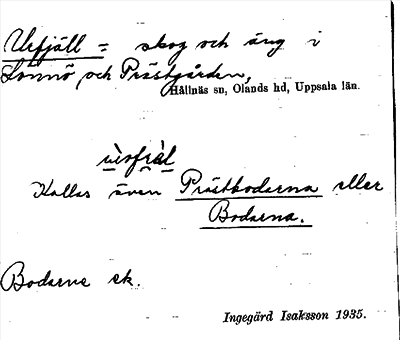 Urfjäll = skog och äng i
Lönnö och Prästgården,
Hållnäs sn, Olands hd, Uppsala län.
Kallas även Prästbodarna eller
Bodarna.
Bodarne ek.
Ingegärd Isaksson 1935.